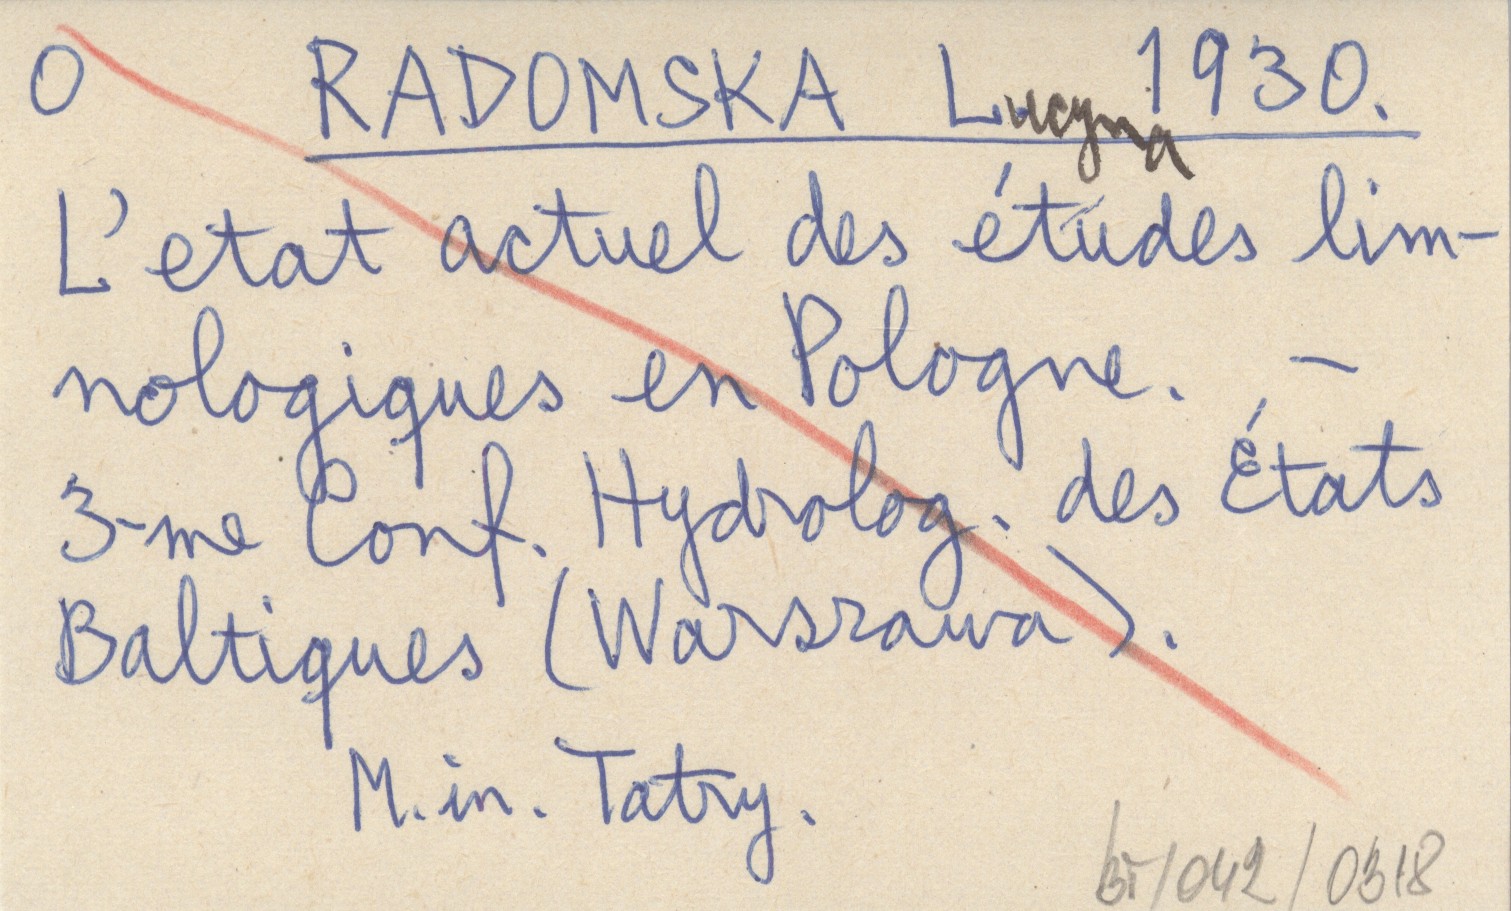 O RADOMSKA Lucyna 1930.
L'etat actuel des études lim-
nologiques en Pologne. —
3-me Conf. Hydrolog. des États
Baltiques (Warszawa).
M. in. Tatry.
BT/042/0318